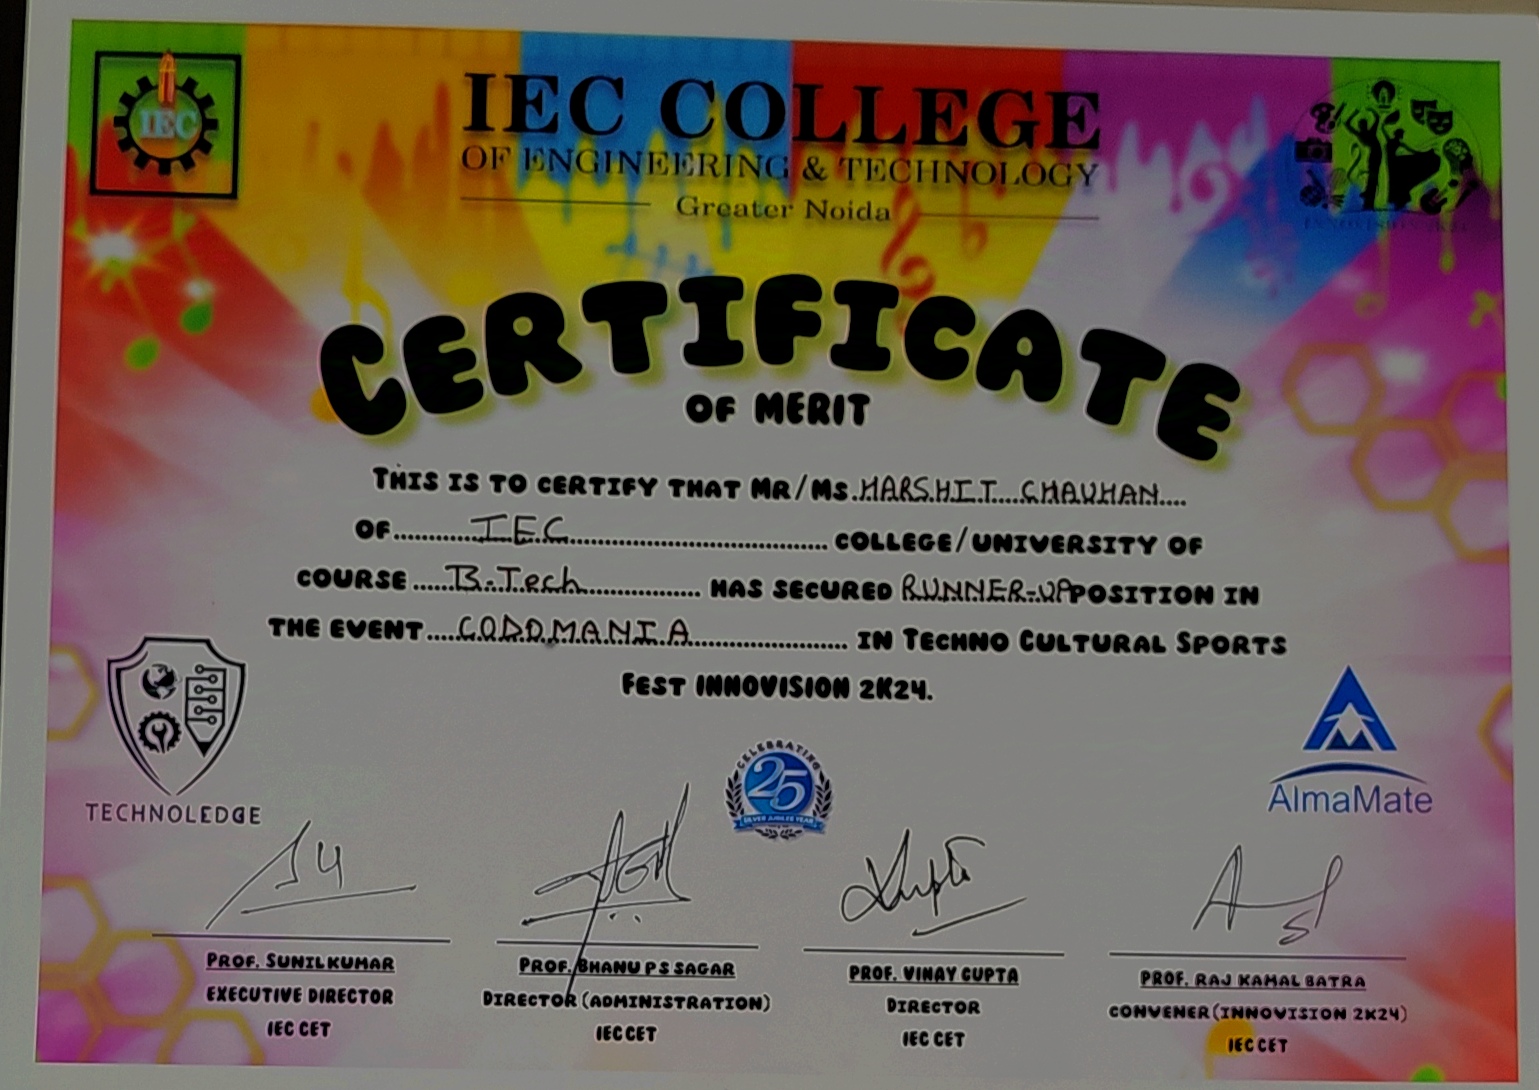 IEC
IEC COLLEGE
OF ENGINEERING & TECHNOLOGY
Greater Noida
CERTIFICATE
OF MERIT
THIS IS TO CERTIFY THAT MR/MS. HARSHIT CHAUHAN
OF IEC COLLEGE/UNIVERSITY OF
COURSE B.Tech HAS SECURED RUNNER-UP POSITION IN
THE EVENT CODOMANIA IN TECHNO CULTURAL SPORTS
FEST INNOVISION 2K24.
TECHNOLEDGE
CELEBRATING
25
SILVER JUBILEE YEAR
AlmaMate
PROF. SUNIL KUMAR
EXECUTIVE DIRECTOR
IEC CET
PROF. BHANU P S SAGAR
DIRECTOR (ADMINISTRATION)
IEC CET
PROF. VINAY GUPTA
DIRECTOR
IEC CET
PROF. RAJ KAMAL BATRA
CONVENER (INNOVISION 2K24)
IEC CET